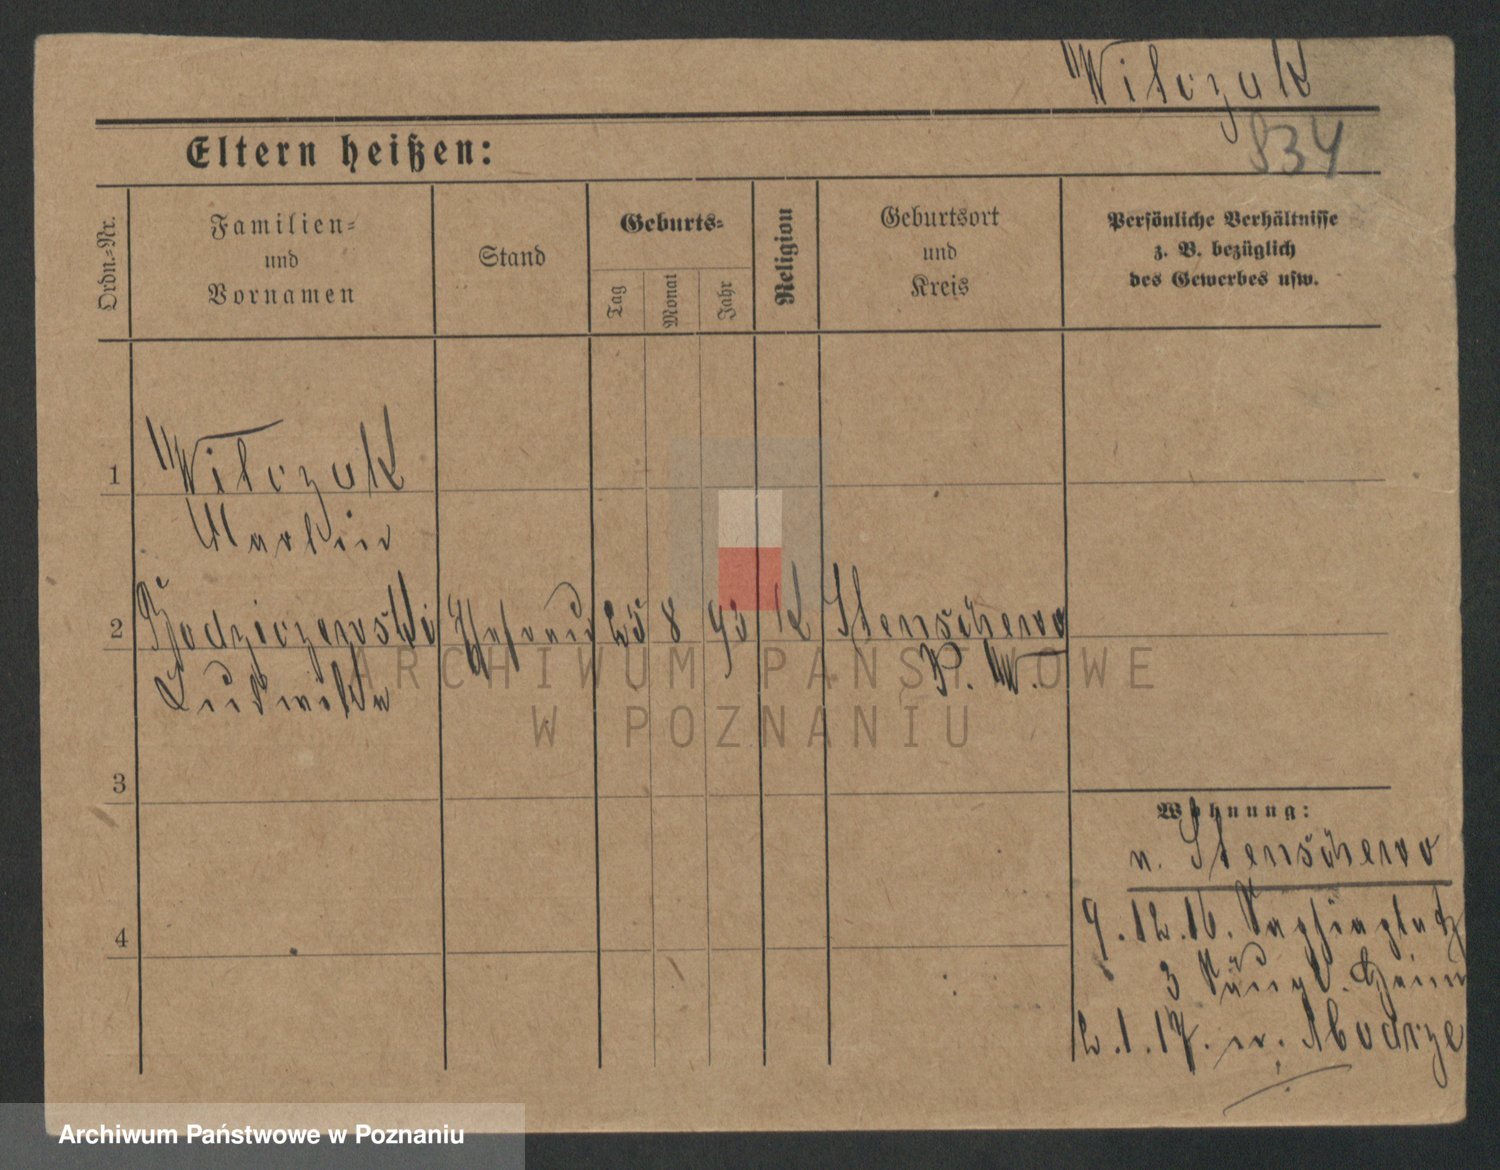 Wilczak
834
Eltern heißen:
Ordn.-Nr.
Familien-
und
Vornamen
Stand
Geburts-
Tag
Monat
Jahr
Religion
Geburtsort
und
Kreis
Persönliche Verhältnisse
z. B. bezüglich
des Gewerbes usw.
1
Wilczak
Martin
2 Radziczewski Ehefrau 25 8 93 K Stenschewo
Ludwika P. W.
3
4
Wohnung:
n. Stenschewo
9.12.16.
3 Säugl. Heim
2.1.17. n.
ARCHIWUM PAŃSTWOWE
W POZNANIU
Archiwum Państwowe w Poznaniu